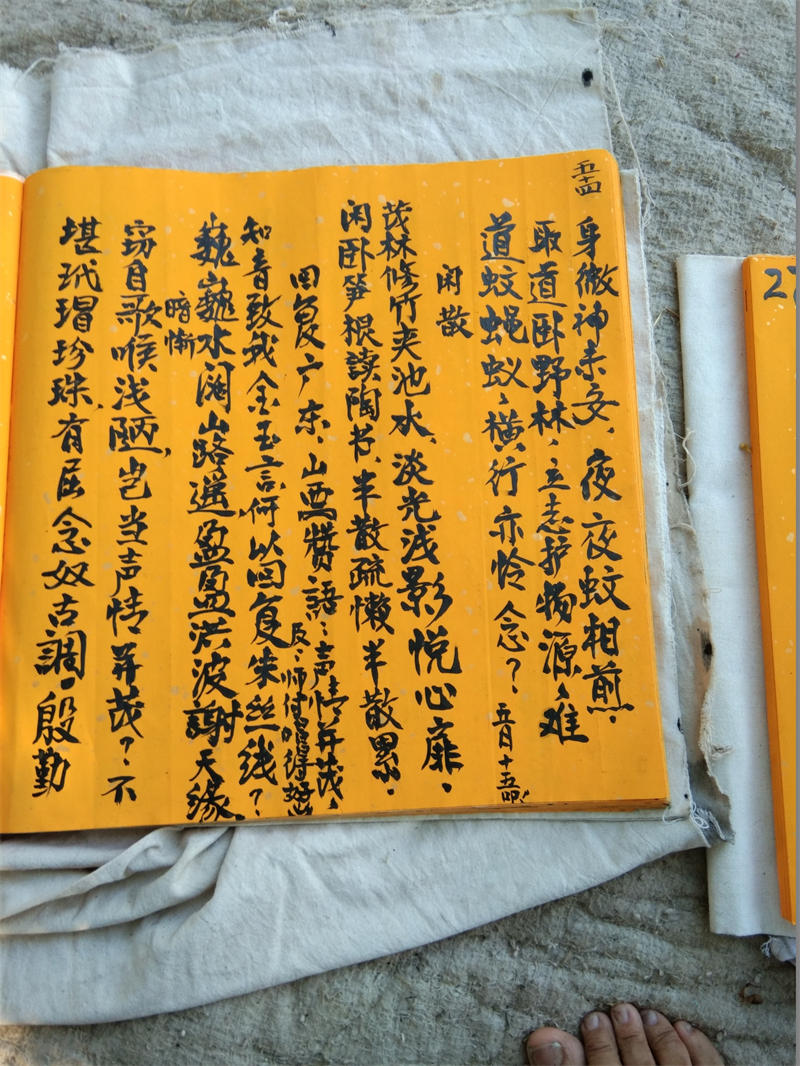 五十四
身微神亲安、夜夜蚊相煎.
取道卧野林、立志护物源、难
道蚊蝇蚁、横行亦怜念? 五月十五
闲散
茂林修竹夹池水、淡光浅影悦心扉.
闲卧笋根读陶书、半散疏懒半散累.
回复广东、山西赞语:声情并茂、
知音致我金玉言何以回复朱丝线?
巍巍水阔山路遥盈盈洪波谢天缘、
暗惭
窃自歌喉浅陋、岂当声情并茂?不
堪玳瑁珍珠、有屈念奴古調.殷勤
27